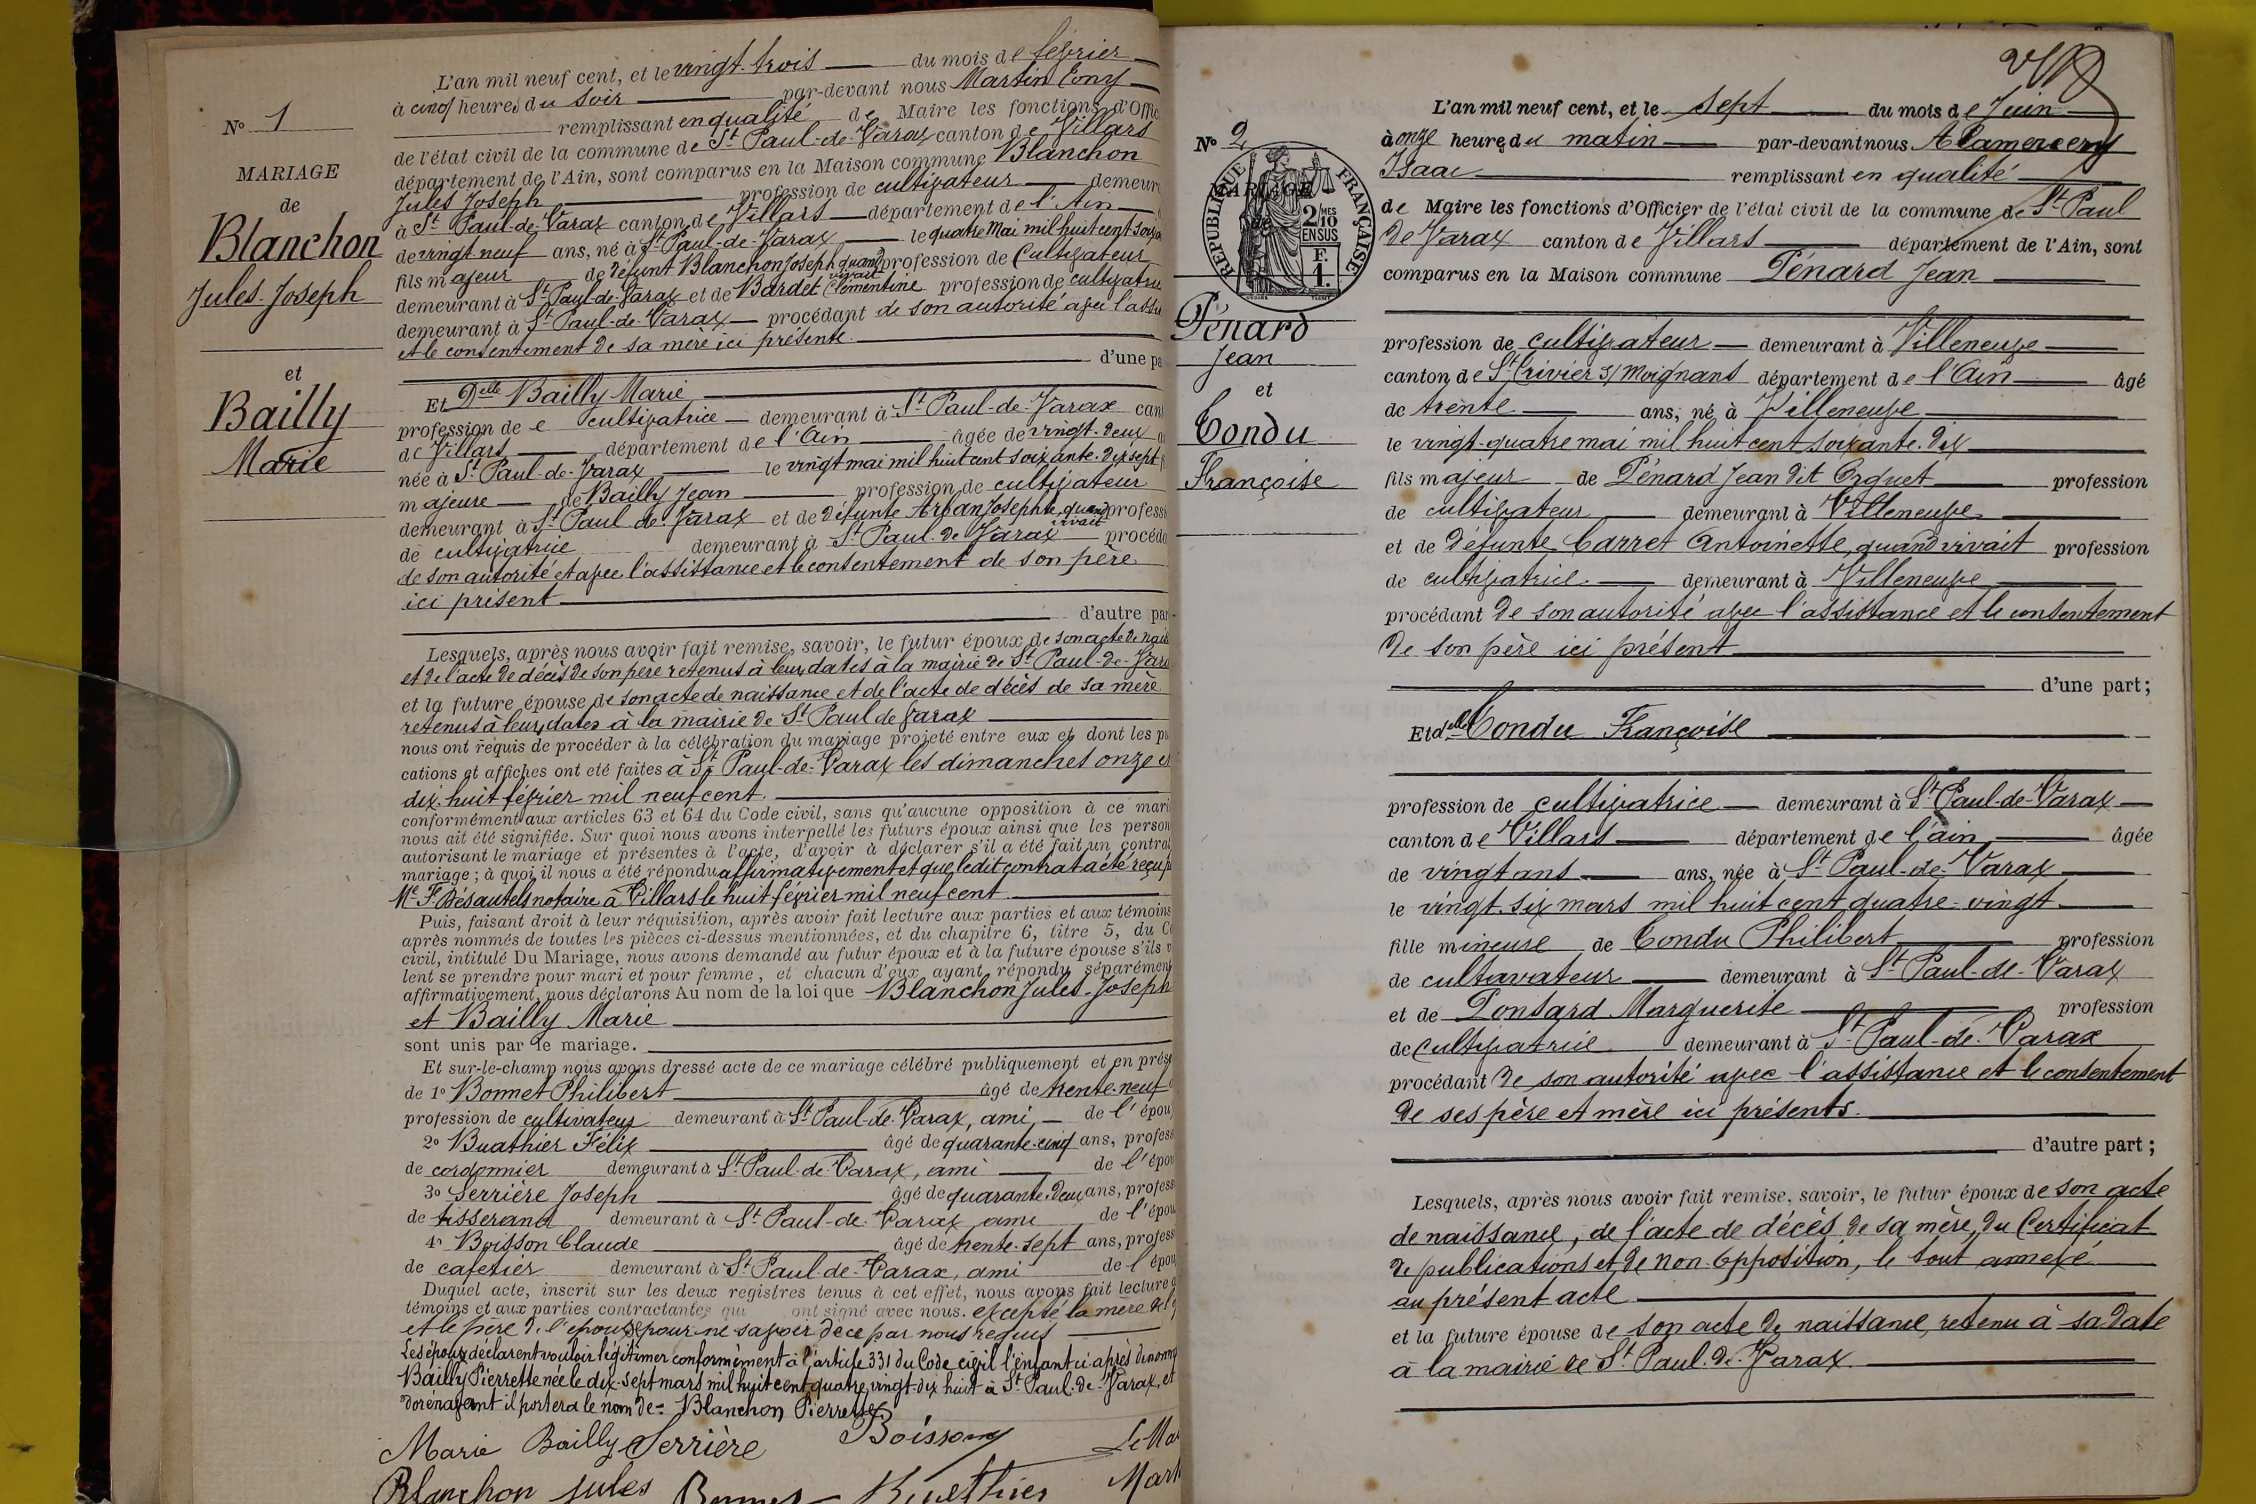 L'an mil neuf cent, et le vingt-trois du mois de février
à cinq heures du soir par-devant nous Martin Tony
remplissant en qualité de Maire les fonctions d'Offic
de l'état civil de la commune de St Paul-de-Varax canton de Villars
département de l'Ain, sont comparus en la Maison commune Blanchon
Jules Joseph profession de cultivateur demeur
à St Paul-de-Varax canton de Villars département de l'Ain
de vingt neuf ans, né à St Paul-de-Varax le quatre Mai mil huit cent
fils majeur de défunt Blanchon Joseph quand vivait profession de Cultivateur
demeurant à St Paul-de-Varax et de Bardet Clémentine profession de cultivatrice
demeurant à St Paul-de-Varax procédant de son autorité avec l'assis
et le consentement de sa mère ici présente
d'une pa
Nº 1
MARIAGE
de
Blanchon
Jules-Joseph
et
Bailly
Marie
Et Delle Bailly Marie
profession de cultivatrice demeurant à St Paul-de-Varax can
de Villars département de l'Ain âgée de vingt-deux
née à St Paul-de-Varax le vingt mai mil huit cent soixante-dix sept
majeure de Bailly Jean profession de cultivateur
demeurant à St Paul de Varax et de défunte Arban Josephte, quand vivait profess
de cultivatrice demeurant à St Paul-de Varax procéda
de son autorité et avec l'assistance et le consentement de son père
ici présent
d'autre par
Lesquels, après nous avoir fait remise, savoir, le futur époux de son acte de nais
et de l'acte de décès de son père retenus à leurs dates à la mairie de St Paul-de-Vara
et la future épouse de son acte de naissance et de l'acte de décès de sa mère
retenus à leurs dates à la mairie de St Paul de Varax
nous ont requis de procéder à la célébration du mariage projeté entre eux et dont les pu
cations et affiches ont été faites à St Paul-de-Varax les dimanches onze et
dix-huit février mil neuf cent.
conformément aux articles 63 et 64 du Code civil, sans qu'aucune opposition à ce mari
nous ait été signifiée. Sur quoi nous avons interpellé les futurs époux ainsi que les person
autorisant le mariage et présentes à l'acte, d'avoir à déclarer s'il a été fait un contrat
mariage ; à quoi il nous a été répondu affirmativement et que ledit contrat a été reçu p
Me F. Désautels notaire à Villars le huit février mil neuf cent
Puis, faisant droit à leur réquisition, après avoir fait lecture aux parties et aux témoins
après nommés de toutes les pièces ci-dessus mentionnées, et du chapitre 6, titre 5, du Co
civil, intitulé Du Mariage, nous avons demandé au futur époux et à la future épouse s'ils v
lent se prendre pour mari et pour femme, et chacun d'eux ayant répondu séparément
affirmativement, nous déclarons Au nom de la loi que Blanchon Jules-Joseph
et Bailly Marie
sont unis par le mariage.
Et sur-le-champ nous avons dressé acte de ce mariage célébré publiquement et en prése
de 1º Bonnet Philibert âgé de trente-neuf
profession de cultivateur demeurant à St Paul-de-Varax, ami, de l'épou
2º Buathier Félix âgé de quarante-cinq ans, profess
de cordonnier demeurant à St Paul-de-Varax, ami de l'épou
3º Serrière Joseph âgé de quarante-deux ans, profess
de tisserand demeurant à St Paul-de-Varax, ami de l'épou
4º Boisson Claude âgé de trente-sept ans, profess
de cafetier demeurant à St Paul-de-Varax, ami de l'épou
Duquel acte, inscrit sur les deux registres tenus à cet effet, nous avons fait lecture
témoins et aux parties contractantes qui ont signé avec nous. excepté la mère de l'
et le père de l'épouse pour ne savoir de ce par nous requis
Les époux déclarent vouloir légitimer conformément à l'article 331 du Code civil l'enfant ci-après dénommé
Bailly Pierrette née le dix-sept mars mil huit cent quatre vingt-dix huit à St Paul-de-Varax, et
dorénavant il portera le nom de Blanchon Pierrette.
Marie Bailly Serrière Boisson Le Mai
Blanchon Jules Bonnet Buathier Mart
Nº 2
MARIAGE
de
RÉPUBLIQUE FRANÇAISE
2/MES 10 EN SUS
F. 1.
Pénard
Jean
et
Condu
Françoise
L'an mil neuf cent, et le sept du mois de Juin
à onze heures du matin par-devant nous Alamercery
Isaac remplissant en qualité
de Maire les fonctions d'Officier de l'état civil de la commune de St Paul
de Varax canton de Villars département de l'Ain, sont
comparus en la Maison commune Pénard Jean
profession de cultivateur demeurant à Villeneuve
canton de St Trivier s/ Moignans département de l'Ain âgé
de trente ans, né à Villeneuve
le vingt-quatre mai mil huit cent soixante-dix
fils majeur de Pénard Jean dit profession
de cultivateur demeurant à Villeneuve
et de défunte Carret Antoinette, quand vivait profession
de cultivatrice demeurant à Villeneuve
procédant de son autorité avec l'assistance et le consentement
de son père ici présent
d'une part ;
Et delle Condu Françoise
profession de cultivatrice demeurant à St Paul-de-Varax
canton de Villars département de l'ain âgée
de vingt ans ans, née à St Paul-de-Varax
le vingt-six mars mil huit cent quatre-vingt
fille mineuse de Condu Philibert profession
de cultavateur demeurant à St Paul-de-Varax
et de Ponsard Marguerite profession
de cultivatrice demeurant à St Paul-de-Varax
procédant de son autorité avec l'assistance et le consentement
de ses père et mère ici présents.
d'autre part ;
Lesquels, après nous avoir fait remise, savoir, le futur époux de son acte
de naissance, de l'acte de décès de sa mère, du Certificat
de publications et de non-opposition, le tout annexé
au présent acte
et la future épouse de son acte de naissance, retenu à sa date
à la mairie de St Paul-de-Varax